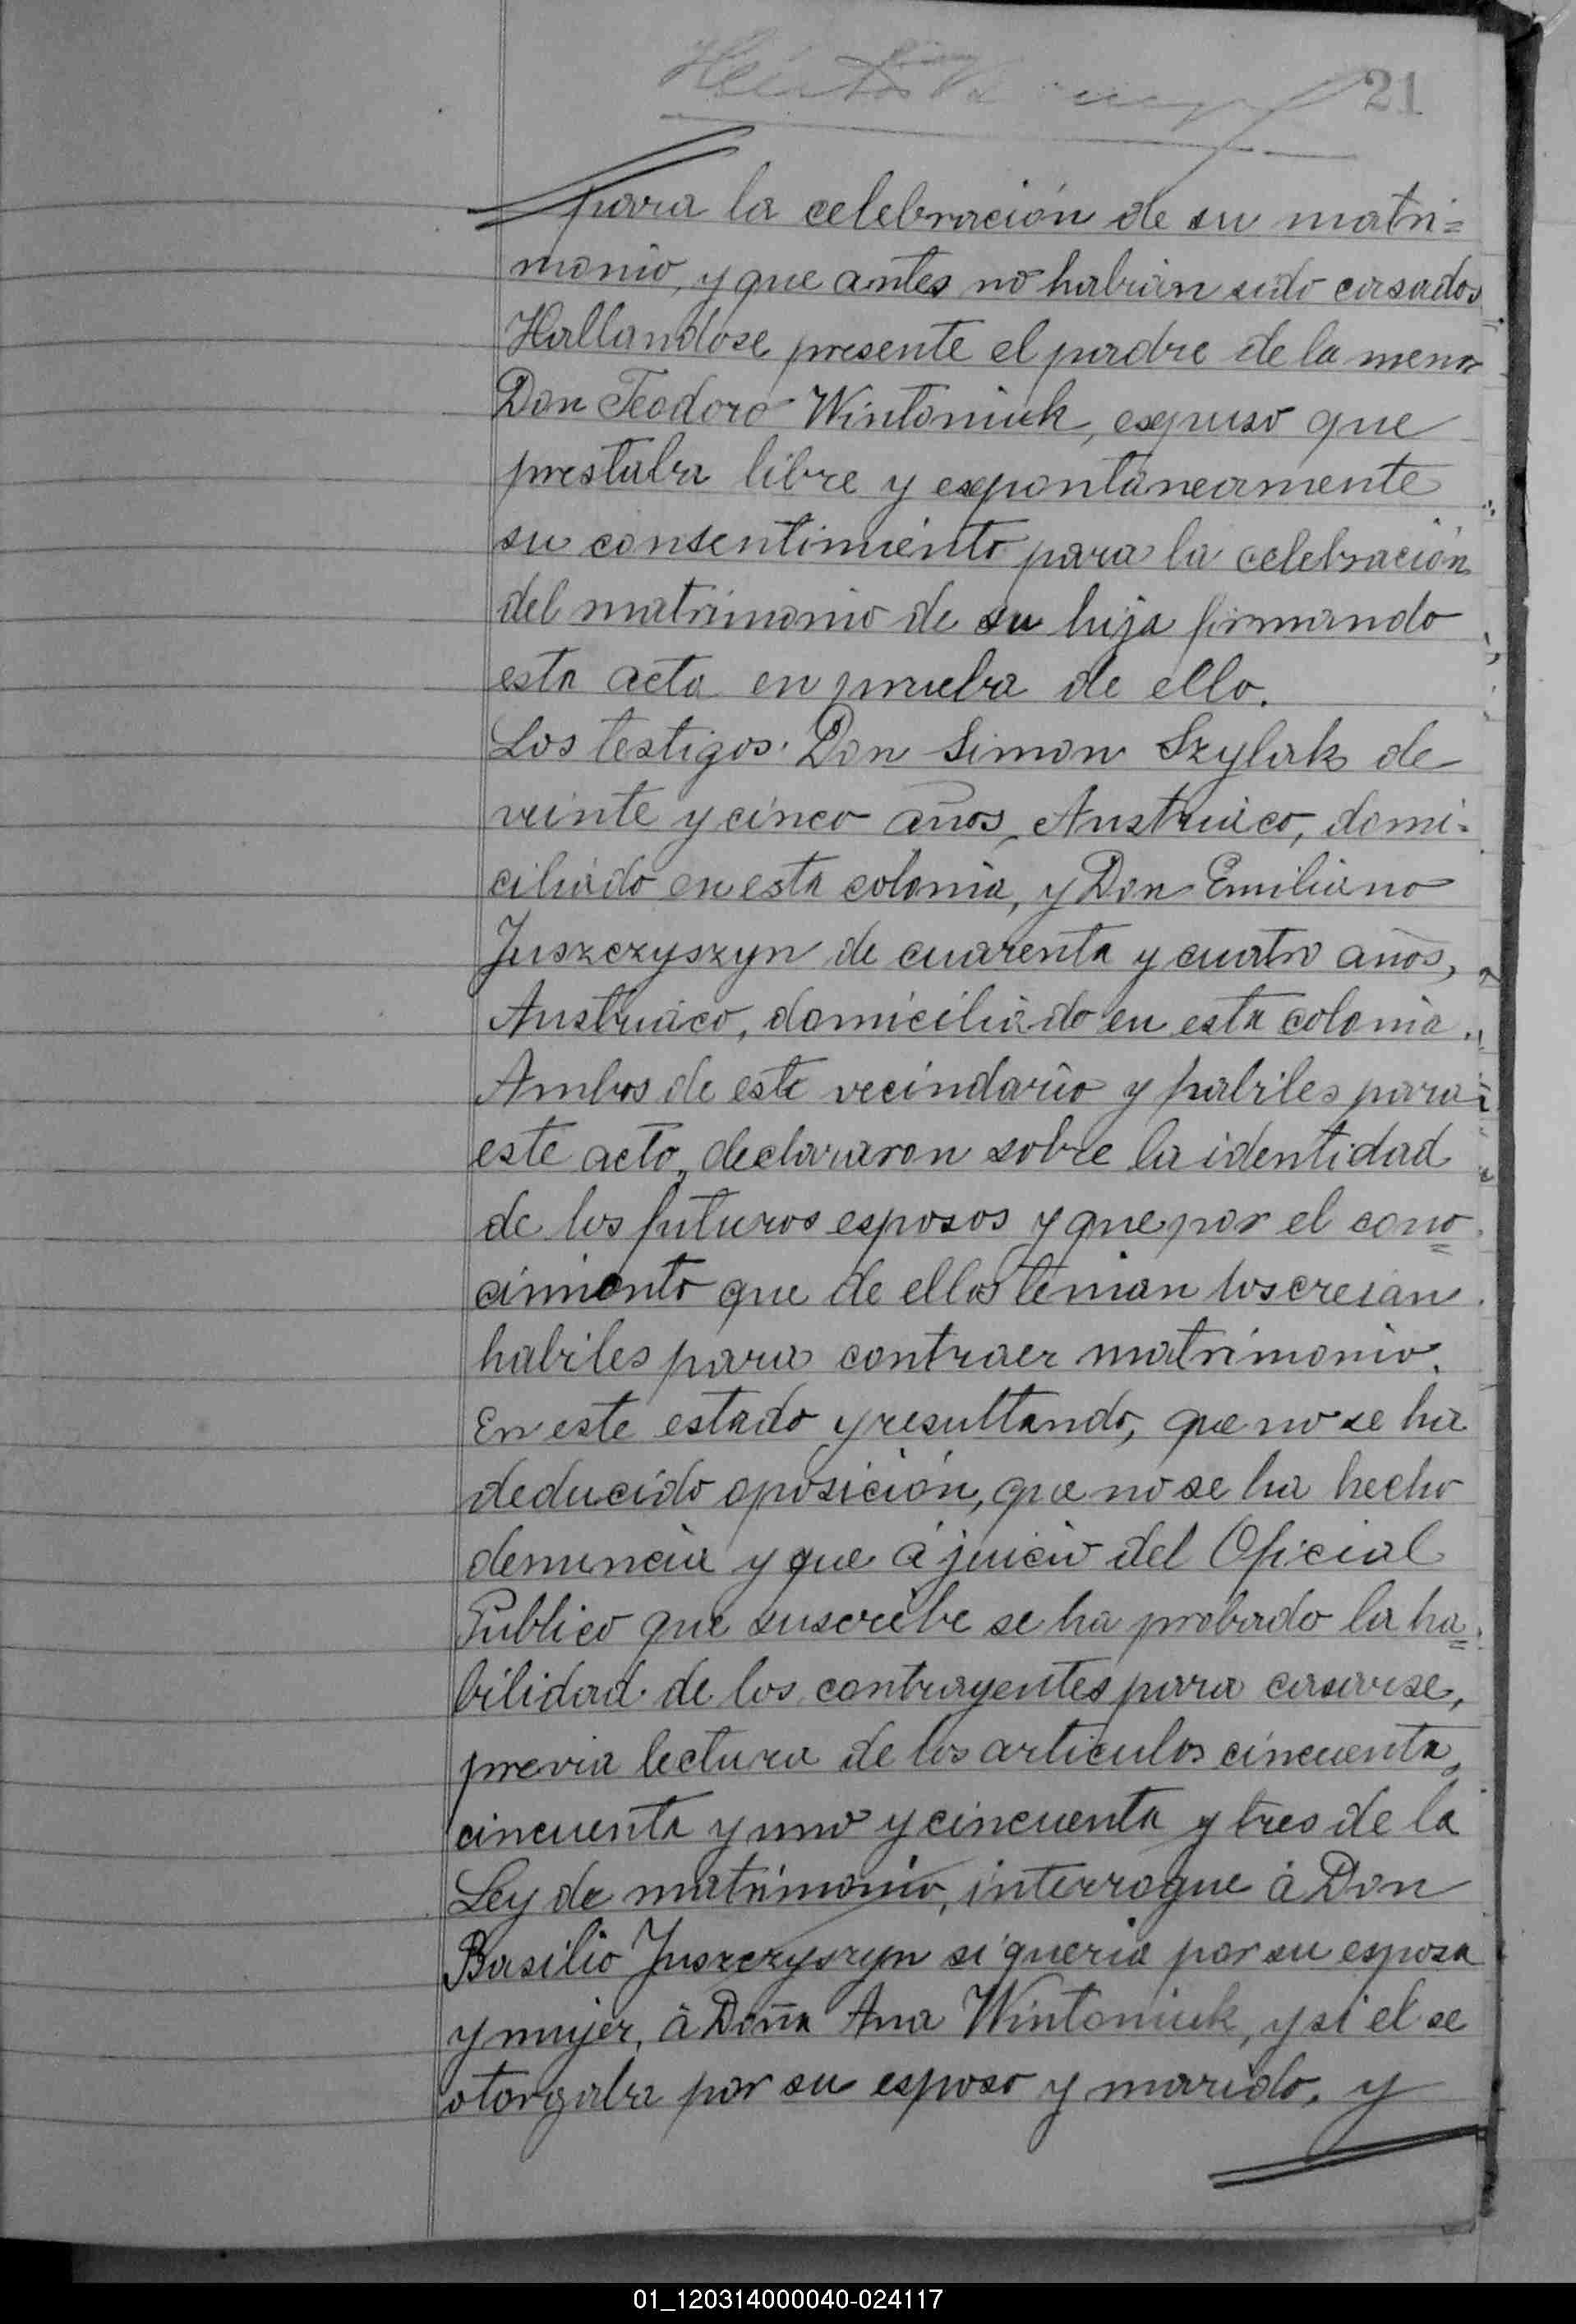 21
para la celebración de su matri=
monio, y que antes no habian sido casados
Hallandose presente el padre de la menor
Don Teodoro Wintoniuk, expuso que
prestaba libre y expontáneamente
su consentimiento para la celebración
del matrimonio de su hija firmando
esta acta en prueba de ello.
Los testigos. Don Simon Szylak de
veinte y cinco años, Austriaco, domi-
ciliado en esta colonia, y Don Emiliano
Juszczyszyn de cuarenta y cuatro años,
Austriaco, domiciliado en esta colonia.
Ambos de este vecindario y habiles para
este acto, declararon sobre la identidad
de los futuros esposos y que por el cono=
cimiento que de ellos tenian los creian
habiles para contraer matrimonio.
En este estado y resultando, que no se ha
deducido oposición, que no se ha hecho
denuncia y que á juicio del Oficial
Publico que suscribe se ha probado la ha=
bilidad de los contrayentes para casarse,
previa lectura de los articulos cincuenta,
cincuenta y uno y cincuenta y tres de la
Ley de matrimonio, interrogue á Don
Basilio Juszczyszyn si queria por su esposa
y mujer, á Doña Ana Wintoniuk, y si el se
otorgaba por su esposo y marido, y
01_120314000040-024117